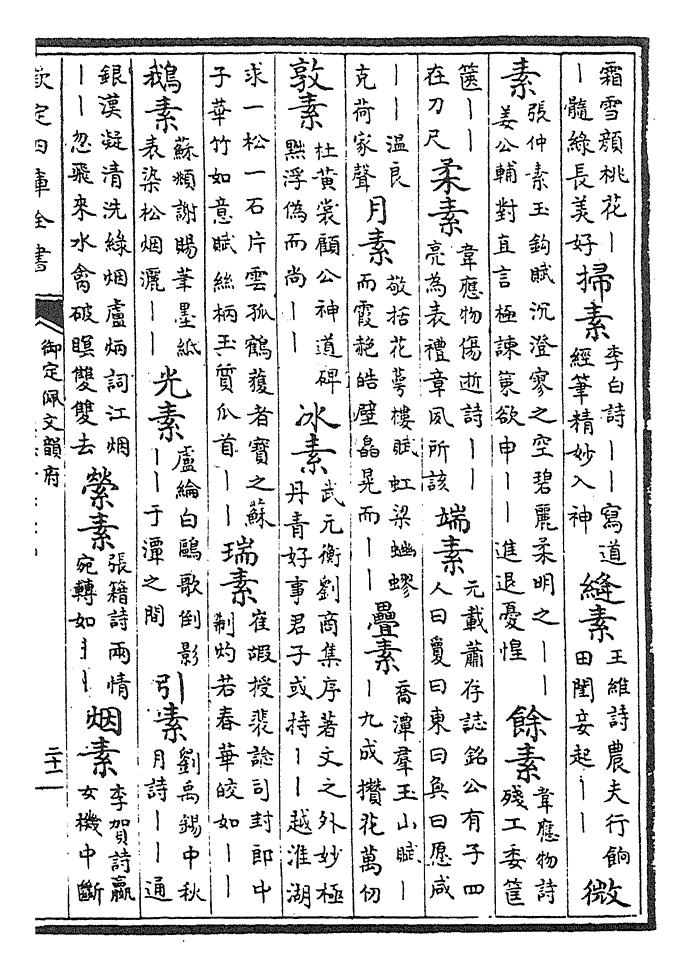 霜雪顔桃花丨丨髓綠長美好 掃素 李白詩丨丨寫道經筆精妙入神 縫素 王維詩農夫行餉田閨妾起丨丨 微
素 張仲素玉鈎賦沉澄寥之空碧麗柔明之丨丨姜公輔對直言極諫策欲申丨丨進退憂惶 餘素 韋應物詩殘工委筐
篋丨丨在刀尺 柔素 韋應物傷逝詩丨丨亮為表禮章夙所該 端素 元載蕭存誌銘公有子四人曰夐曰東曰奐曰愿咸
丨丨温良克荷家聲 月素 敬括花萼樓賦虹梁蚴蟉而霞赩皓壁晶晃而丨丨 疊素 喬潭羣玉山賦丨丨九成攢花萬仞
敦素 杜黄裳顧公神道碑黜浮偽而尚丨丨 冰素 武元衡劉商集序著文之外妙極丹青好事君子或持丨丨越淮湖
求一松一石片雲孤鶴獲者寶之蘇子華竹如意賦絲柄玉質瓜首丨丨 瑞素 崔嘏授裴諗司封郎中制灼若春華皎如丨丨
鵝素 蘇頲謝賜筆墨紙表染松烟灑丨丨 光素 盧綸白鷗歌倒影丨丨于潭之間 引素 劉禹錫中秋月詩丨丨通
銀漢凝清洗綠烟盧炳詞江烟丨丨忽飛來水禽破暝雙雙去 縈素 張籍詩兩情宛轉如丨丨 烟素 李賀詩嬴女機中斷
欽定四庫全書 御定佩文韻府 二十二